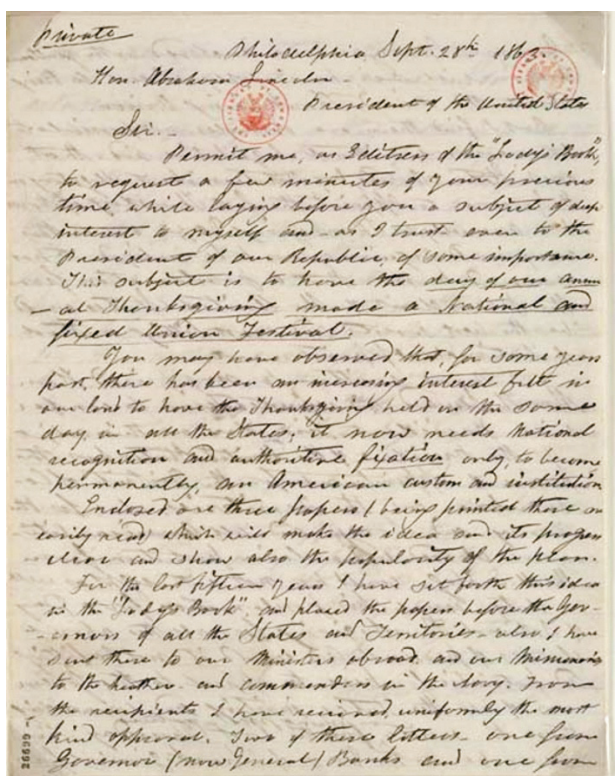 Private
Philadelphia Sept. 28th 1863
Hon. Abraham Lincoln -
President of the United States
Sir. -
Permit me, as Editress of the "Lady's Book",
to request a few minutes of your precious
time, while laying before you a subject of deep
interest to myself and - as I trust - even to the
President of our Republic, of some importance.
This subject is to have the day of our annu-
-al Thanksgiving made a National and
fixed Union Festival.
You may have observed that, for some years
past, there has been an increasing interest felt in
our land to have the Thanksgiving held on the same
day, in all the States; it now needs National
recognition and authoritive fixation, only, to become
permanently, an American custom and institution.
Enclosed are three papers (being printed these are
easily read) which will make the idea and its progress
clear and show also the popularity of the plan.
For the last fifteen years I have set forth this idea
in the "Lady's Book", and placed the papers before the Gov-
-ernors of all the States and Territories - also I have
sent these to our Ministers abroad, and our Missionaries
to the heathen - and commanders in the Navy. From
the recipients I have received, uniformly the most
kind approval. Two of these letters - one from
Governor (now General) Banks and one from
26699